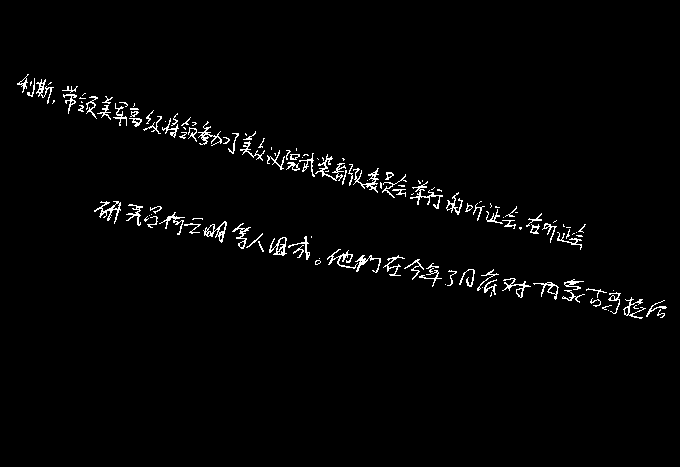 利斯，带领美军高级将领参加了美众议院武装部队委员会举行的听证会，在听证会
研究员何云明等人组成。他们在今年7月底对内蒙古哥拉后